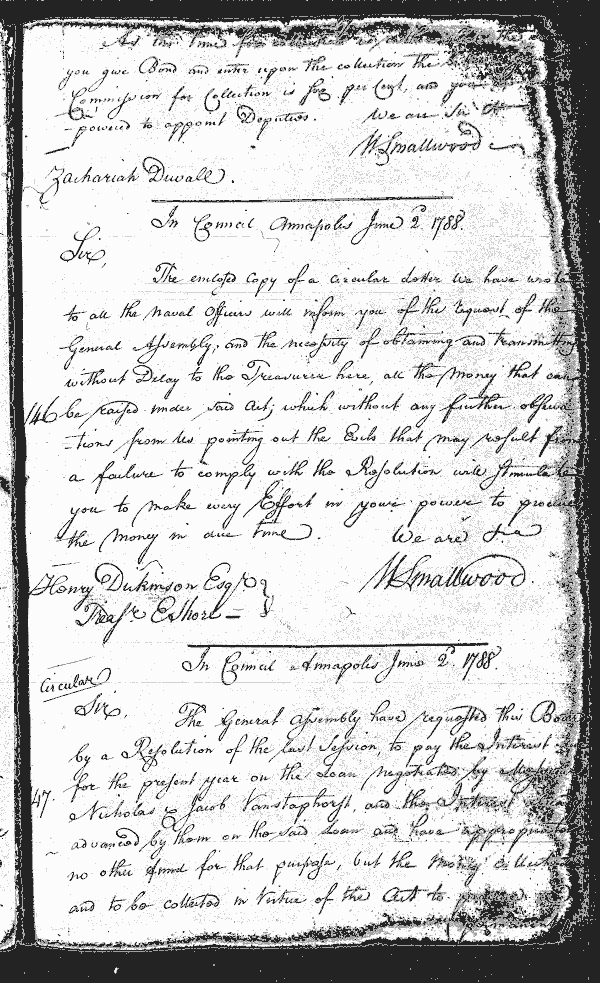 As the time for
you give Bond and enter upon the collection the
Commission for Collection is five per Cent, and you
-powered to appoint Deputies. We are Sir &ca
W Smallwood
Zachariah Duvall.
In Council Annapolis June 2d. 1788.
Sir,
The enclosed Copy of a circular Letter we have wrote
to all the Naval Officers will inform you of the request of the
General Assembly, and the necessity of obtaining and transmitting
without Delay to the Treasurer here, all the Money that can
146 be raised under said Act; which without any further observa
-tions from us pointing out the Evils that may result from
a failure to comply with the Resolution will stimulate
you to make every Effort in your power to procure
the Money in due time. We are &ca
W Smallwood.
Henry Dickinson Esqr. }
Treasr. E Shore —
In Council Annapolis June 2d. 1788.
Circular
Sir,
The General Assembly have requested this Board
by a Resolution of the last Session, to pay the Interest
for the present year on the Loan negotiated by Messrs
47. Nicholas & Jacob Vanstaphorst, and the Interest
advanced by them on the said Loan and have appropriated
no other fund for that purpose, but the Money collected
and to be collected in Virtue of the Act to